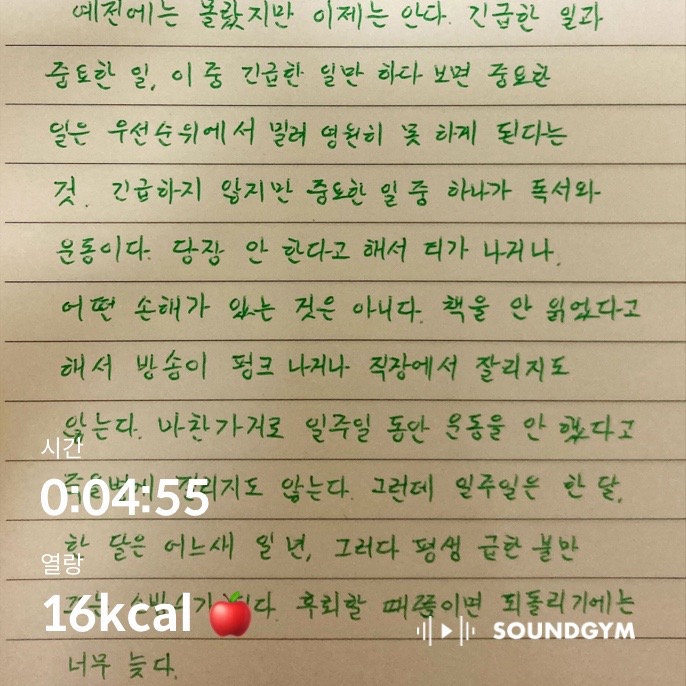 예전에는 몰랐지만 이제는 안다. 긴급한 일과
중요한 일, 이 중 긴급한 일만 하다 보면 중요한
일은 우선순위에서 밀려 영원히 못 하게 된다는
것. 긴급하지 않지만 중요한 일 중 하나가 독서와
운동이다. 당장 안 한다고 해서 티가 나거나,
어떤 손해가 있는 것은 아니다. 책을 안 읽었다고
해서 방송이 펑크 나거나 직장에서 잘리지도
않는다. 마찬가지로 일주일 동안 운동을 안 했다고
시간
지도 않는다. 그런데 일주일은 한 달,
0:04:55
한 달은 어느새 일 년, 그러다 평생 급한 불만
열량
다. 후회할 때쯤이면 되돌리기에는
16kcal 🍎
SOUNDGYM
너무 늦다.